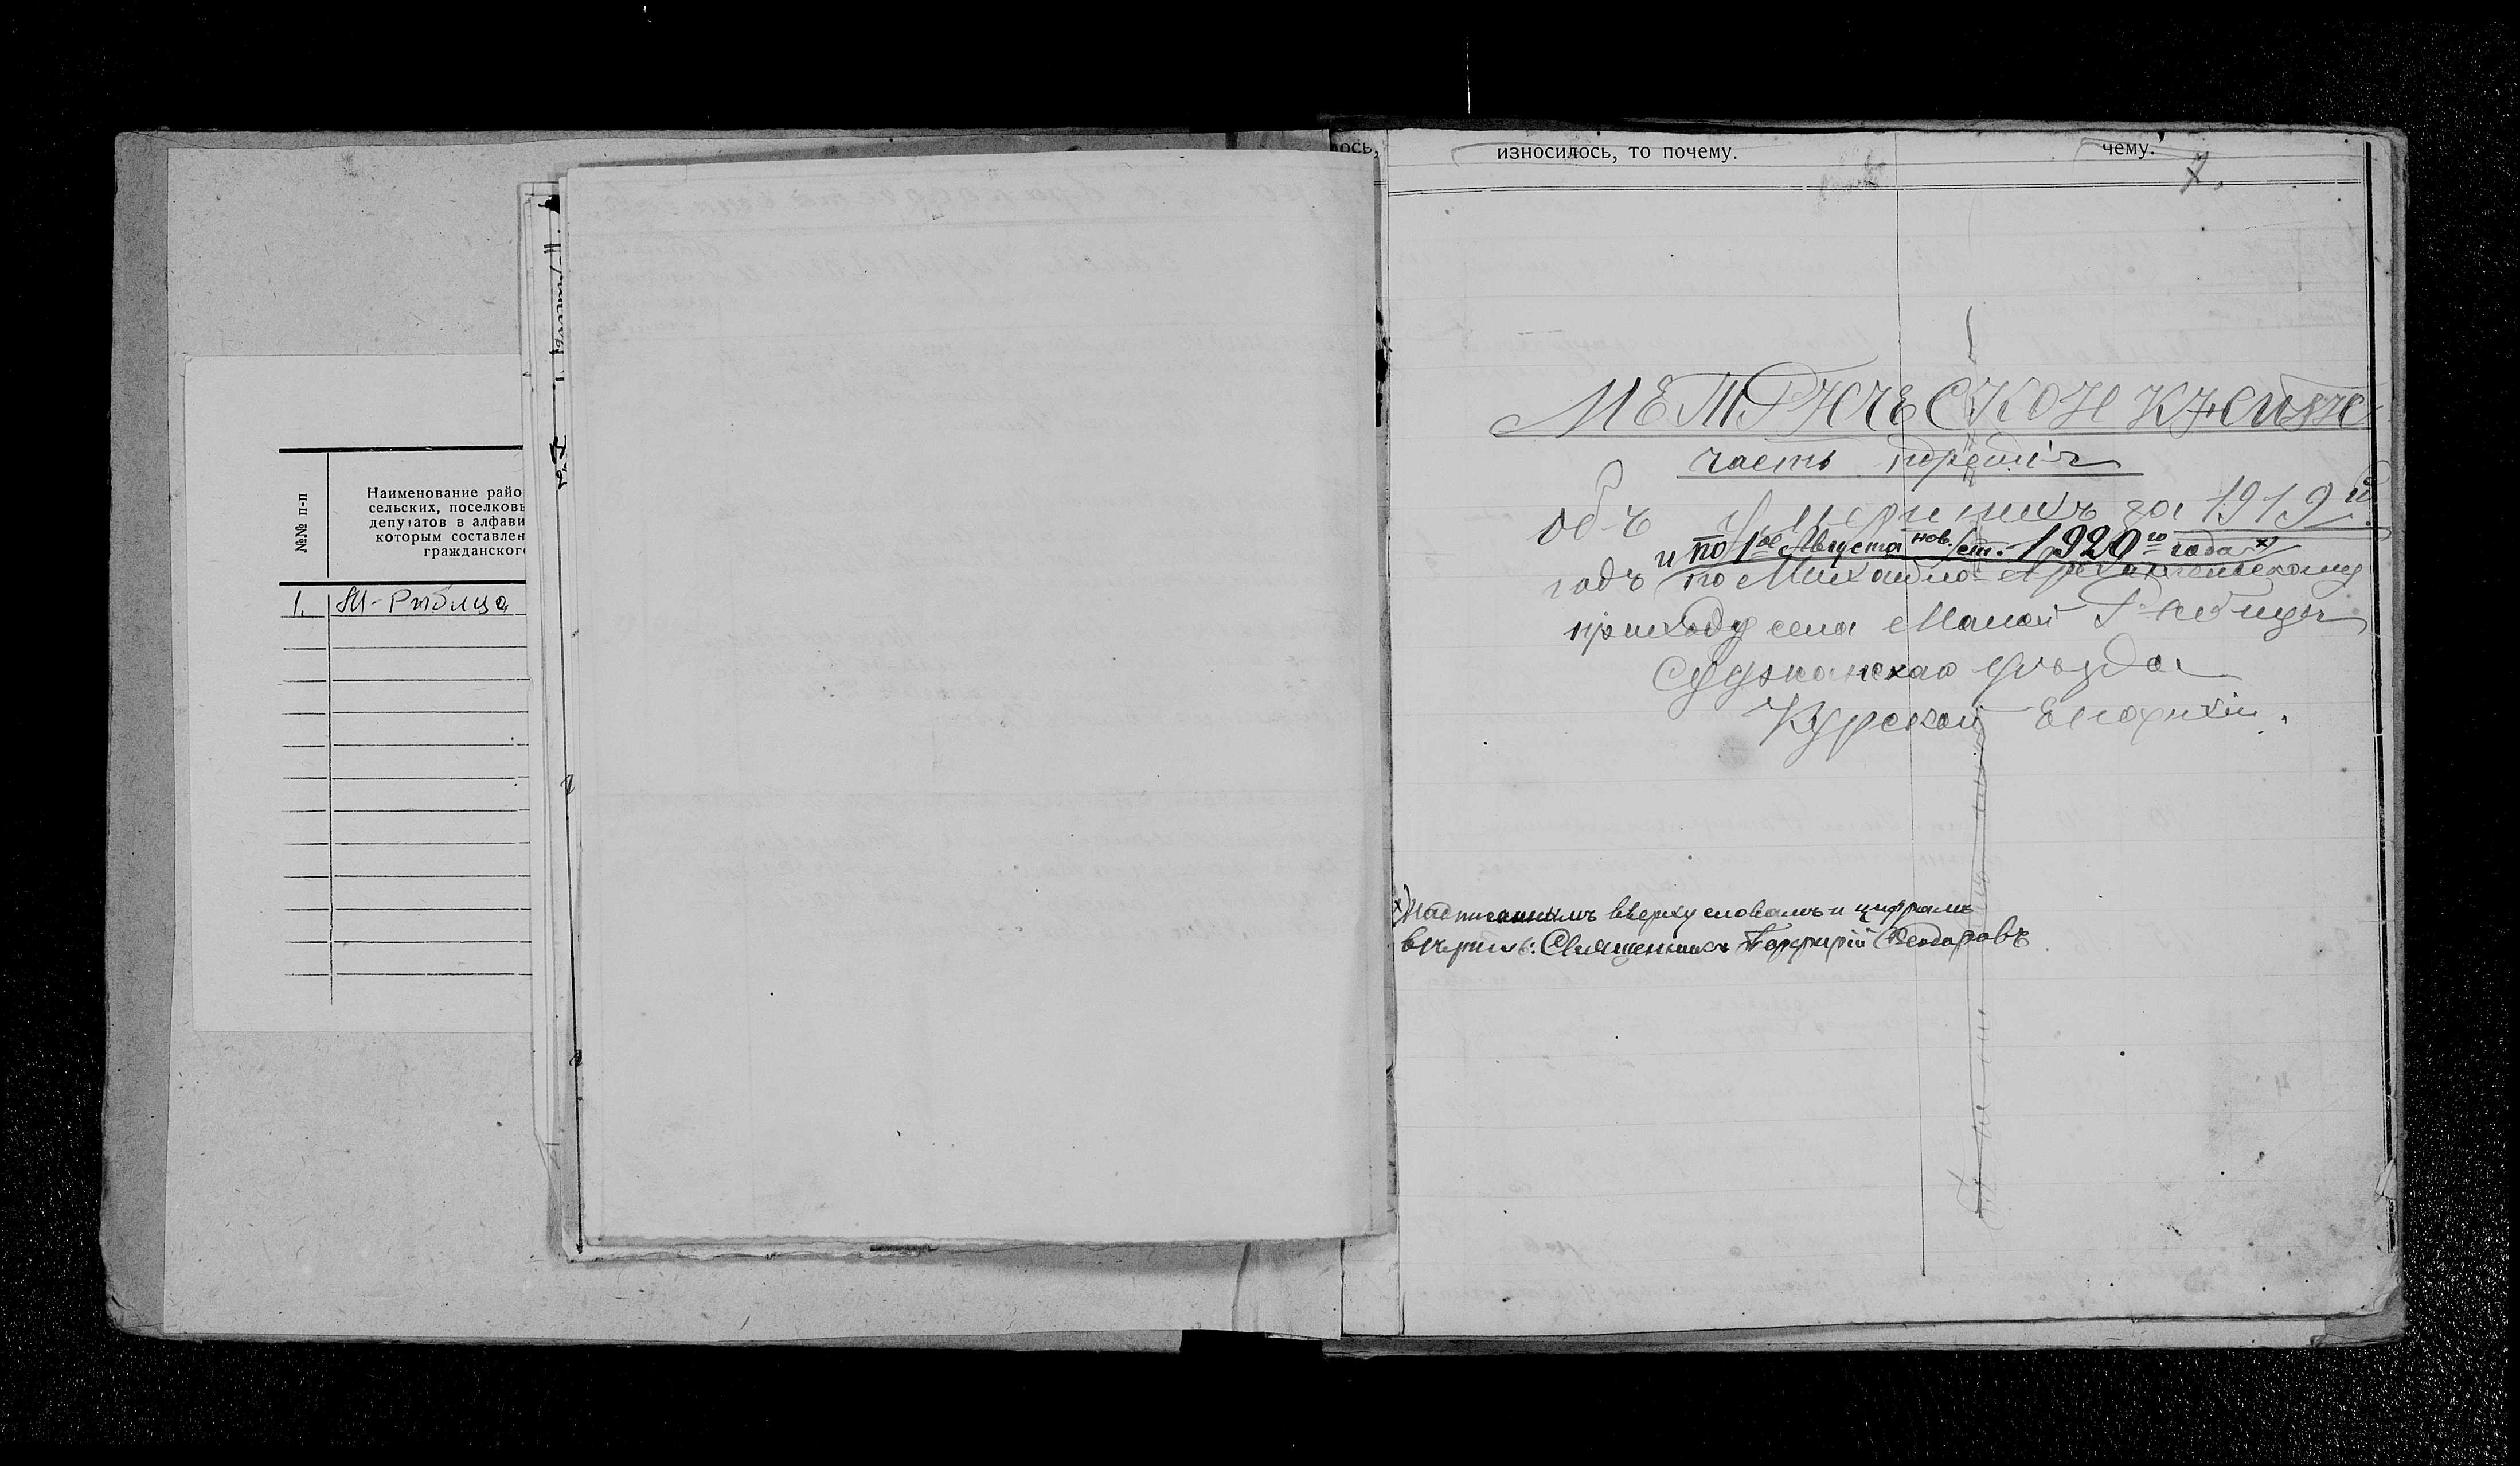 №№ п-п
Наименование райо
сельских, поселковы
депутатов в алфави
которым составлен
гражданского
1. М-Рыбица
ось,
износилось, то почему.
чему.
7.
МЕТРИЧЕСКОЙ КНИГИ
часть третія
объ умершихъ за 1919й
и по 1ое Августа нов. ст. 1920го года х)
годъ по Михайло-Архангельскому
приходу села Малой Рыбицы
Суджанскаго уѣзда
Курской Епархіи.
х) Надписаннымъ вверху словамъ и цифрамъ
вѣрить: Священникъ Порфирій Ѳеодоровъ